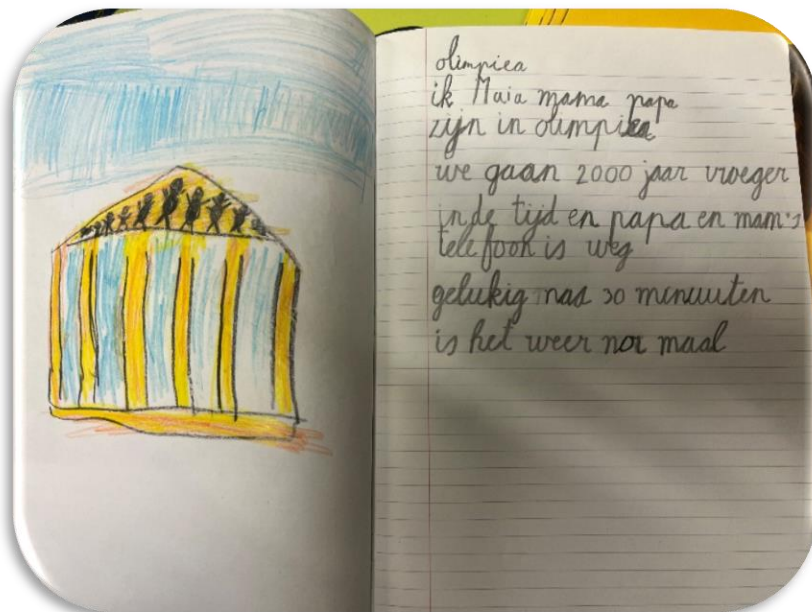 olimpiea
ik Maia mama papa
zijn in olimpiea
we gaan 2000 jaar vroeger
in de tijd en papa en mam's
telefoon is weg
gelukig nas 30 menuuten
is het weer nor maal